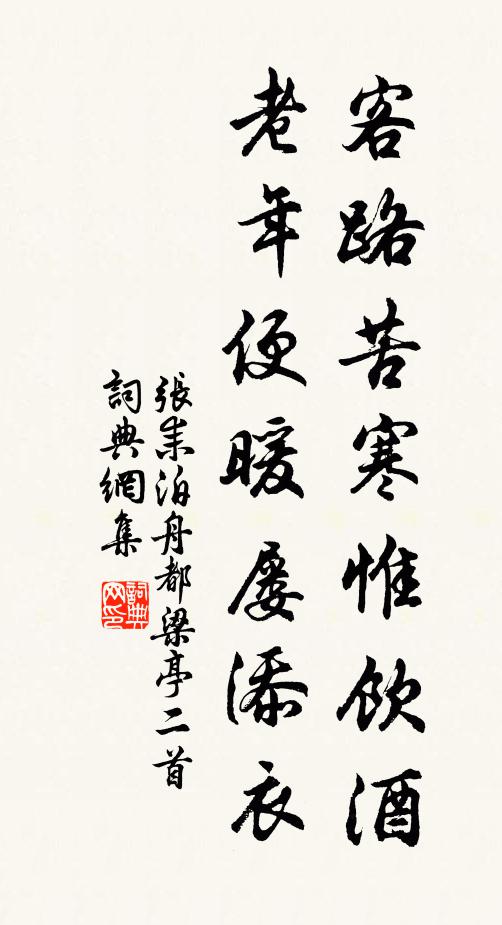 客路苦寒惟飲酒
老年便暖屡添衣
張耒泊舟都梁亭二首
詞典網集
詞典网印